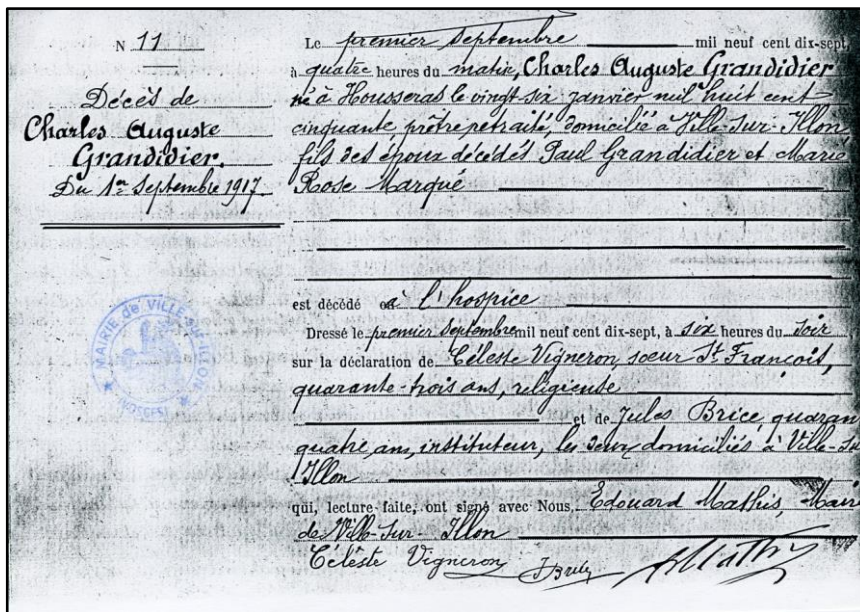 N 11
Décès de
Charles Auguste
Grandidier.
Du 1er Septembre 1917.
MAIRIE de VILLE-SUR-ILLON
(VOSGES)
Le premier Septembre mil neuf cent dix-sept,
à quatre heures du matin, Charles Auguste Grandidier
né à Housseras le vingt-six janvier mil huit cent
cinquante, prêtre retraité, domicilié à Ville-sur-Illon
fils des époux décédés Paul Grandidier et Marie
Rose Marqué
est décédé à l'hospice
Dressé le premier Septembre mil neuf cent dix-sept, à six heures du soir
sur la déclaration de Céleste Vigneron, soeur St François,
quarante-trois ans, religieuse
et de Jules Brice, quaran
quatre ans, instituteur, les deux domiciliés à Ville-Su
Illon
qui, lecture faite, ont signé avec Nous, Edouard Mathis, Mair
de Ville-sur-Illon
Céleste Vigneron J Brice Mathis